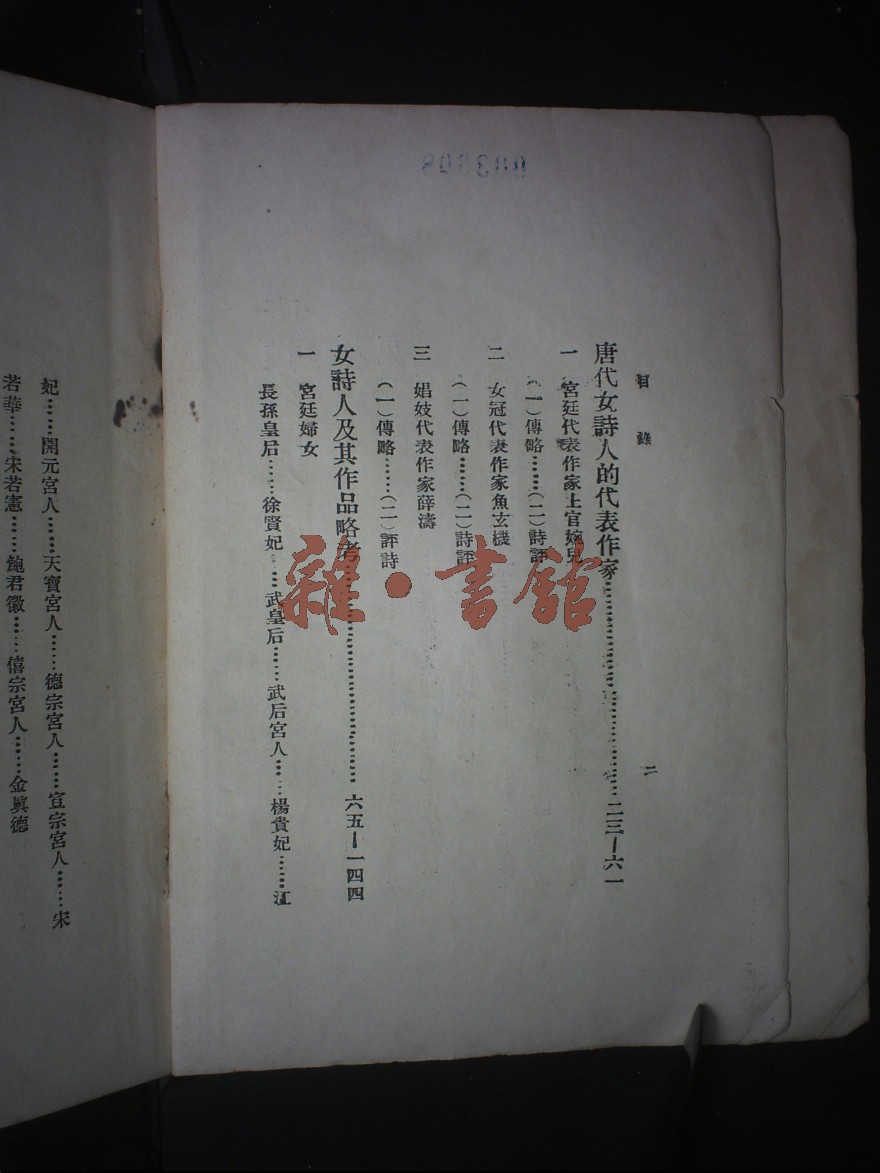 目錄
二
唐代女詩人的代表作家……………………二三—六一
一 宮廷代表作家上官婉兒
(一)傳略……(二)詩評
二 女冠代表作家魚玄機
(一)傳略……(二)詩評
三 娼妓代表作家薛濤
(一)傳略……(二)評詩
女詩人及其作品略考……………………六五—一四四
一 宮廷婦女
長孫皇后……徐賢妃……武皇后……武后宮人……楊貴妃……江
妃……開元宮人……天寶宮人……德宗宮人……宣宗宮人……宋
若華……宋若憲……鮑君徽……僖宗宮人……金眞德
雜·書館